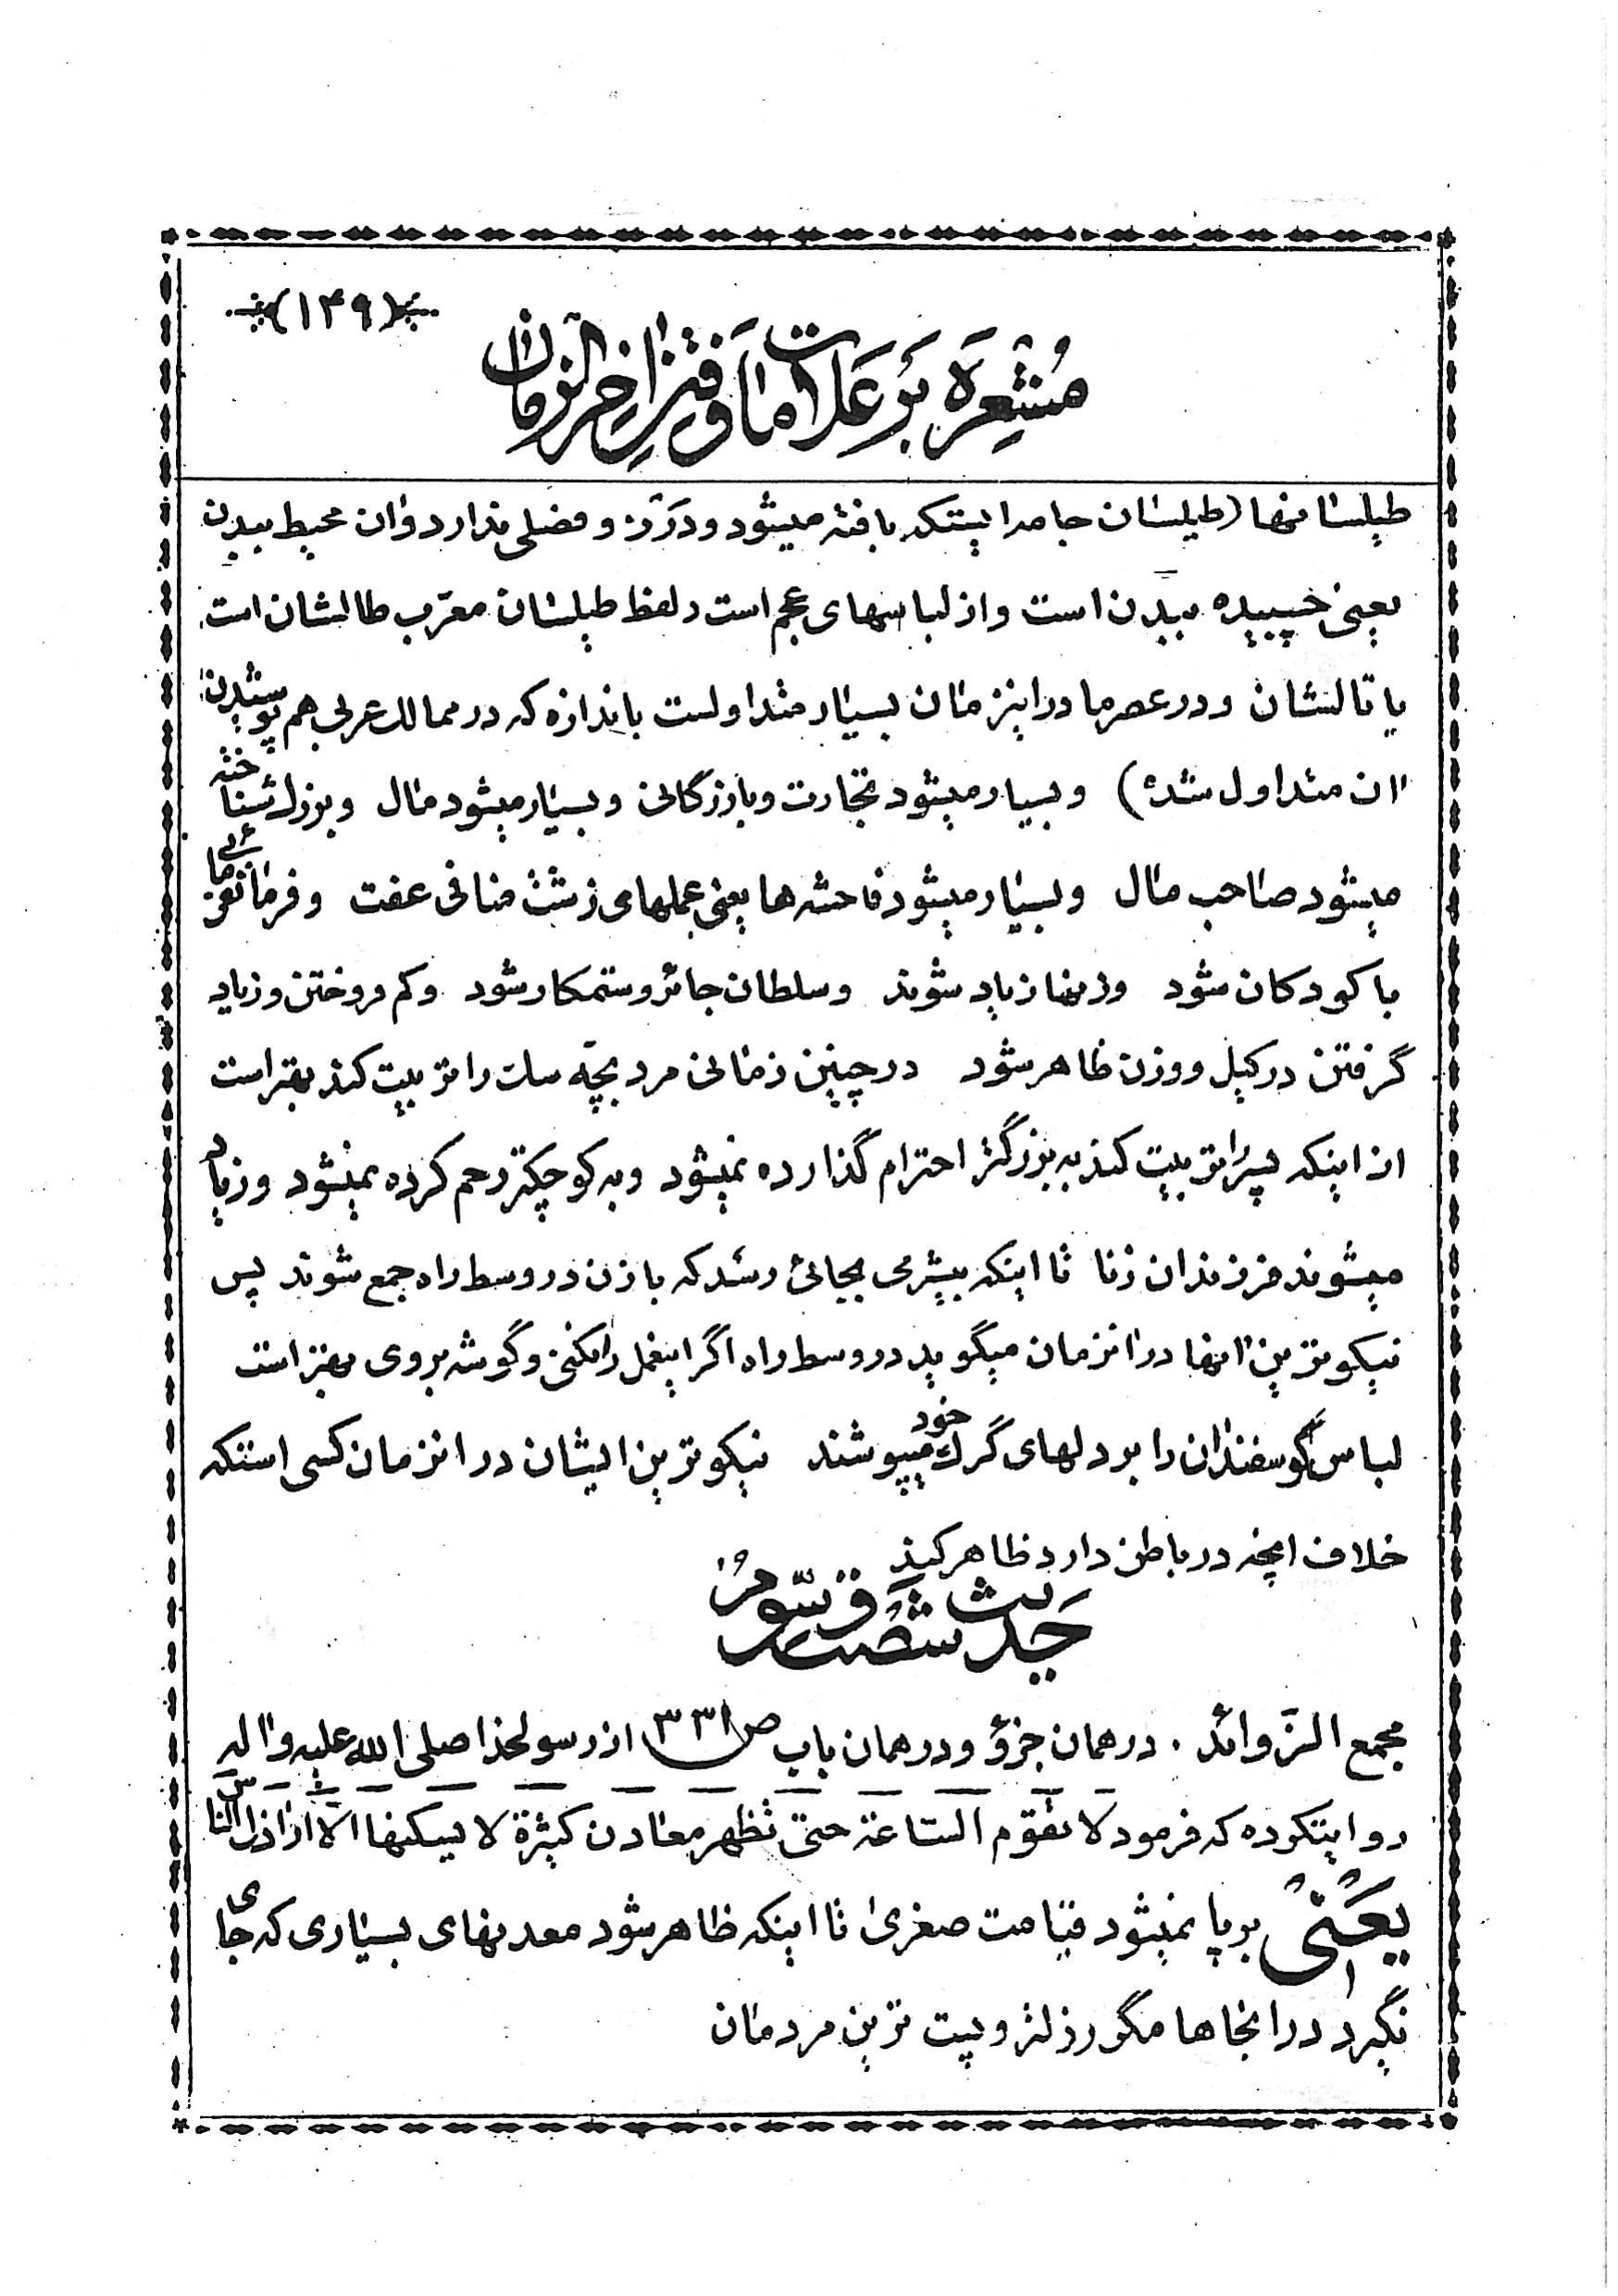 (۱۴۹)
مُشعِرَه بَر عَلامات وَ فِتَنِ آخِرالزمان
طیلسانها (طیلسان جامه ایستکه بافته میشود و درز و فضلی ندارد و ان محیط ببدن
یعنی چسبیده ببدن است و از لباسهای عجم است و لفظ طیلسان معرّب طالشان است
یا تالشان و در عصر ما در اینزمان بسیار متداولست باندازه که در ممالک عربی هم پوشیدن
آن متداول شده) و بسیار میشود تجارت و بازرگانی و بسیار میشود مال و بزرک شناخته
میشود صاحب مال و بسیار میشود فاحشه ها یعنی عملهای زشت منافی عفت و فرمانفرمائی
با کودکان شود و زنها زیاد شوند و سلطان جائر و ستمکار شود و کم فروختن و زیاد
گرفتن در کیل و وزن ظاهر شود در چنین زمانی مرد بچّه سک را تربیت کند بهتر است
از اینکه پسر را تربیت کند به بزرگتر احترام گذارده نمیشود و به کوچکتر رحم کرده نمیشود و زیاد
میشوند فرزندان زنا تا اینکه بیشرمی بجائی رسد که با زن در وسط راه جمع شوند پس
نیکوترین آنها در انزمان میگوید در وسط راه اگر اینعمل را نکنی و گوشه بروی بهتر است
لباس گوسفندان را بر دلهای گرک خود میپوشند نیکوترین ایشان در انزمان کسی استکه
خلاف انچه در باطن دارد ظاهر کند
حَدیث شَصت و سّومُ
مجمع الزّوائد . در همان جزؤ و در همان باب ص ۳۳۱ از رسولخدا صلی الله علیه و آله
روایتکرده که فرمود لا تقوم الساعة حتی تظهر معادن کثیرة لا یسکنها الا اراذل الناس
یَعنی بر پا نمیشود قیامت صغری تا اینکه ظاهر شود معدنهای بسیاری که جای
نگیرد در انجاها مگر رذلتر و پست ترین مردمان